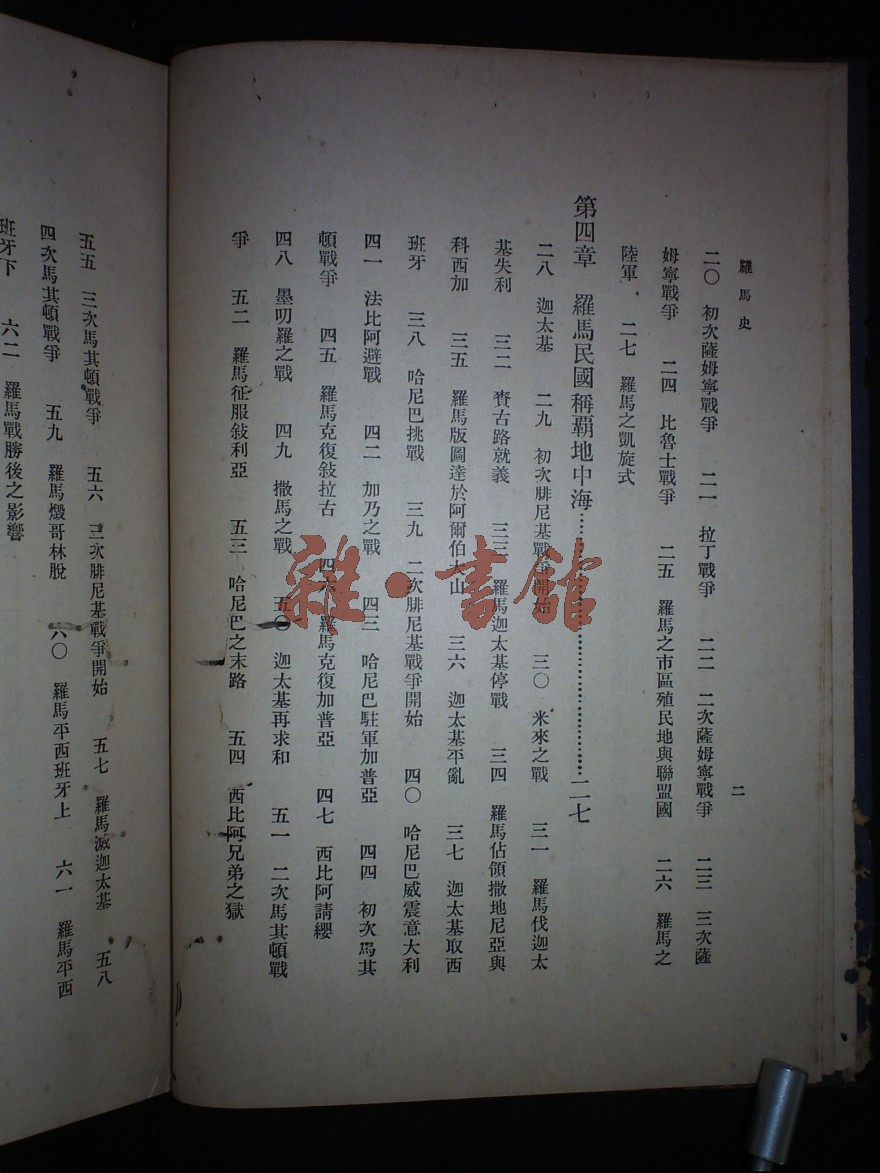 羅馬史
二
二〇 初次薩姆寧戰爭 二一 拉丁戰爭 二二 二次薩姆寧戰爭 二三 三次薩
姆寧戰爭 二四 比魯士戰爭 二五 羅馬之市區殖民地與聯盟國 二六 羅馬之
陸軍 二七 羅馬之凱旋式
第四章 羅馬民國稱覇地中海……………………………二七
二八 迦太基 二九 初次腓尼基戰爭開始 三〇 米來之戰 三一 羅馬伐迦太
基失利 三二 賚古路就義 三三 羅馬迦太基停戰 三四 羅馬佔領撒地尼亞與
科西加 三五 羅馬版圖達於阿爾伯大山 三六 迦太基平亂 三七 迦太基取西
班牙 三八 哈尼巴挑戰 三九 二次腓尼基戰爭開始 四〇 哈尼巴威震意大利
四一 法比阿避戰 四二 加乃之戰 四三 哈尼巴駐軍加普亞 四四 初次馬其
頓戰爭 四五 羅馬克復敍拉古 四六 羅馬克復加普亞 四七 西比阿請纓
四八 墨叨羅之戰 四九 撒馬之戰 五〇 迦太基再求和 五一 二次馬其頓戰
爭 五二 羅馬征服敍利亞 五三 哈尼巴之末路 五四 西比阿兄弟之獄
五五 三次馬其頓戰爭 五六 三次腓尼基戰爭開始 五七 羅馬滅迦太基 五八
四次馬其頓戰爭 五九 羅馬燬哥林脫 六〇 羅馬平西班牙上 六一 羅馬平西
班牙下 六二 羅馬戰勝後之影響
雜·書館